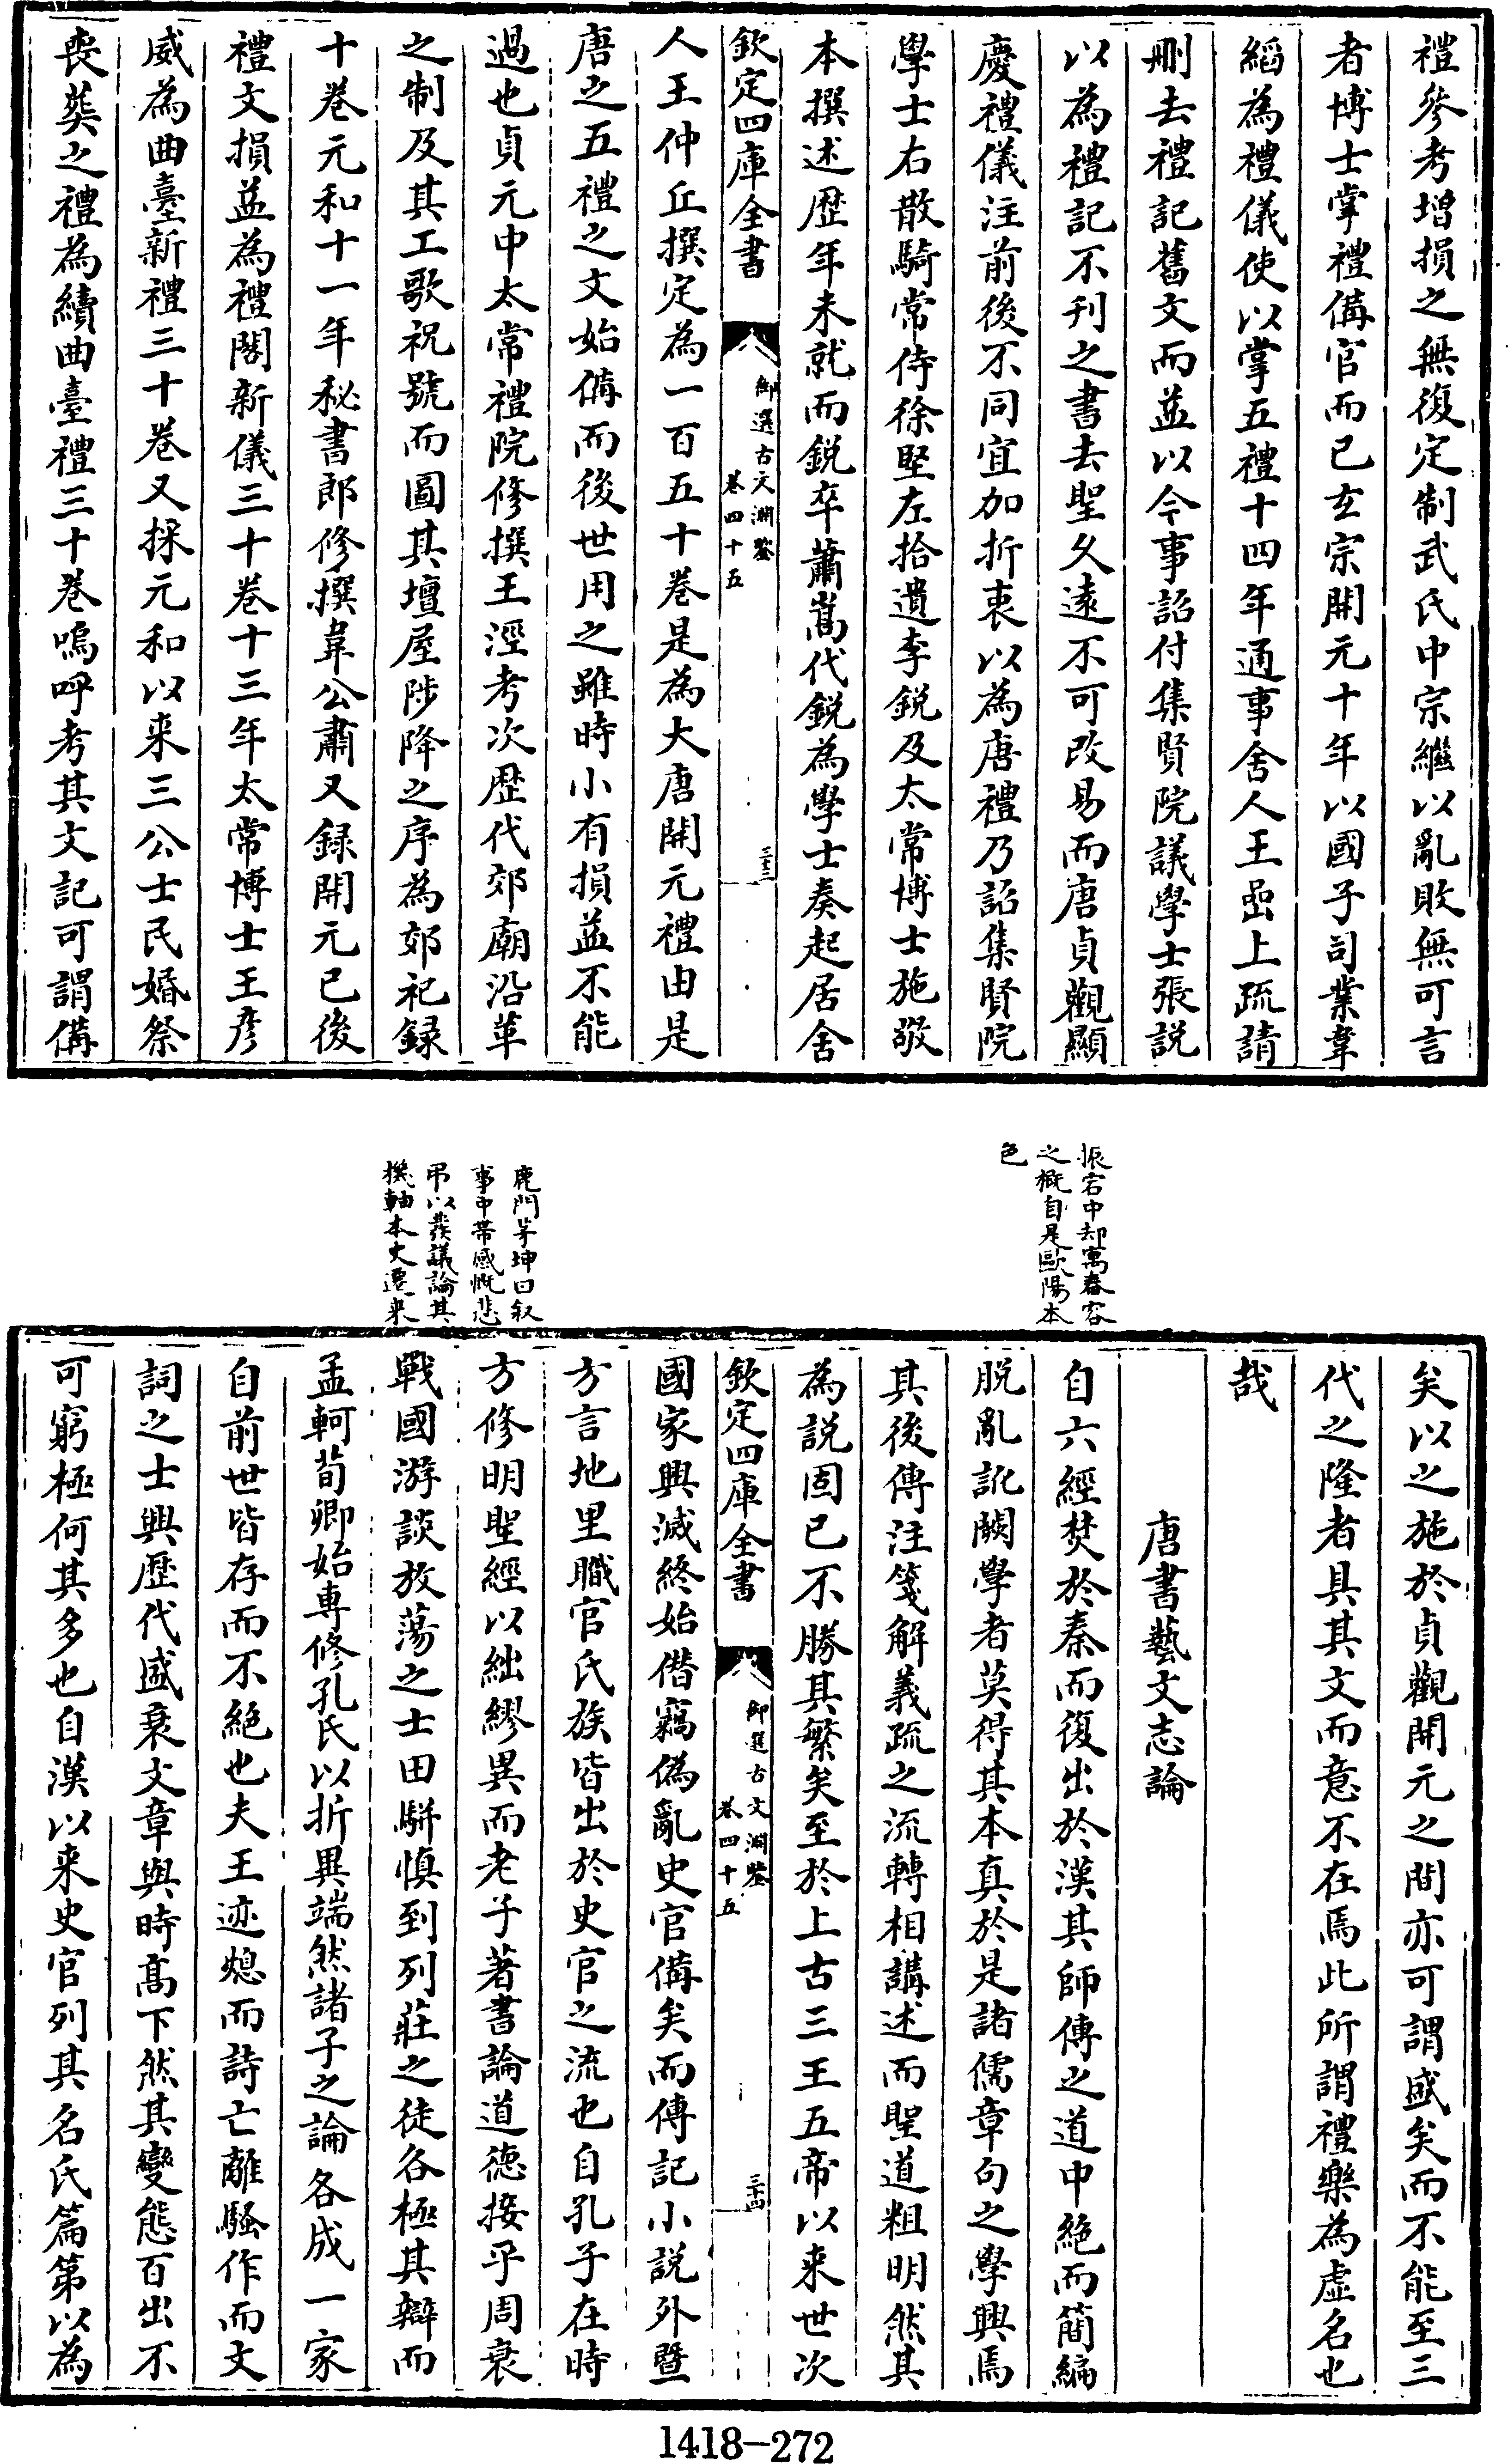 禮參考增損之無復定制武氏中宗繼以亂敗無可言
者博士掌禮備官而已玄宗開元十年以國子司業韋
縚為禮儀使以掌五禮十四年通事舍人王嵒上疏請
刪去禮記舊文而益以今事詔付集賢院議學士張說
以為禮記不刊之書去聖久遠不可改易而唐貞觀顯
慶禮儀注前後不同宜加折衷以為唐禮乃詔集賢院
學士右散騎常侍徐堅左拾遺李銳及太常博士施敬
本撰述歷年未就而銳卒蕭嵩代銳為學士奏起居舍
欽定四庫全書
御選古文淵鑒
卷四十五
三十三
人王仲丘撰定為一百五十卷是為大唐開元禮由是
唐之五禮之文始備而後世用之雖時小有損益不能
過也貞元中太常禮院修撰王涇考次歷代郊廟沿革
之制及其工歌祝號而圖其壇屋陟降之序為郊祀録
十卷元和十一年秘書郎修撰韋公肅又録開元已後
禮文損益為禮閣新儀三十卷十三年太常博士王彥
威為曲臺新禮三十卷又採元和以来三公士民婚祭
喪葬之禮為續曲臺禮三十卷嗚呼考其文記可謂備
振宕中却寓春容
之概自是歐陽本
色
鹿門茅坤曰叙
事中帶感慨悲
吊以發議論其
機軸本史遷来
矣以之施於貞觀開元之間亦可謂盛矣而不能至三
代之隆者具其文而意不在焉此所謂禮樂為虛名也
哉
唐書藝文志論
自六經焚於秦而復出於漢其師傳之道中絶而簡編
脫亂訛闕學者莫得其本真於是諸儒章句之學興焉
其後傳注箋解義疏之流轉相講述而聖道粗明然其
為說固已不勝其繁矣至於上古三王五帝以来世次
欽定四庫全書
御選古文淵鑒
卷四十五
三十四
國家興滅終始僭竊偽亂史官備矣而傳記小說外暨
方言地里職官氏族皆出於史官之流也自孔子在時
方修明聖經以絀繆異而老子著書論道德接乎周衰
戰國游談放蕩之士田駢慎到列莊之徒各極其辯而
孟軻荀卿始專修孔氏以折異端然諸子之論各成一家
自前世皆存而不絶也夫王迹熄而詩亡離騷作而文
詞之士興歷代盛衰文章與時高下然其變態百出不
可窮極何其多也自漢以来史官列其名氏篇第以為
1418-272